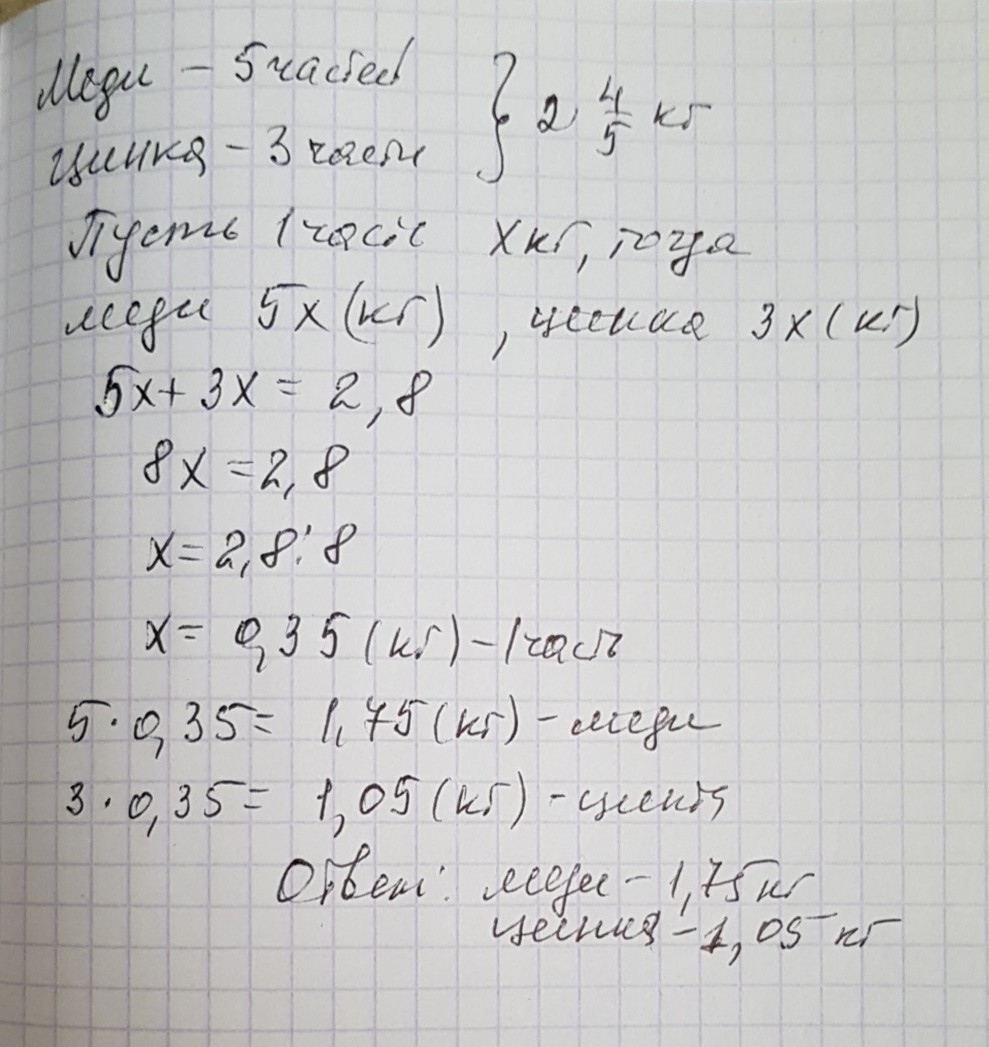 Меди – 5 частей
цинка – 3 части } 2 4/5 кг
Пусть 1 часть x кг, тогда
меди 5x (кг) , цинка 3x (кг)
5x + 3x = 2,8
8x = 2,8
x = 2,8 : 8
x = 0,35 (кг) – 1 часть
5 · 0,35 = 1,75 (кг) – меди
3 · 0,35 = 1,05 (кг) – цинка
Ответ: меди – 1,75 кг
цинка – 1,05 кг